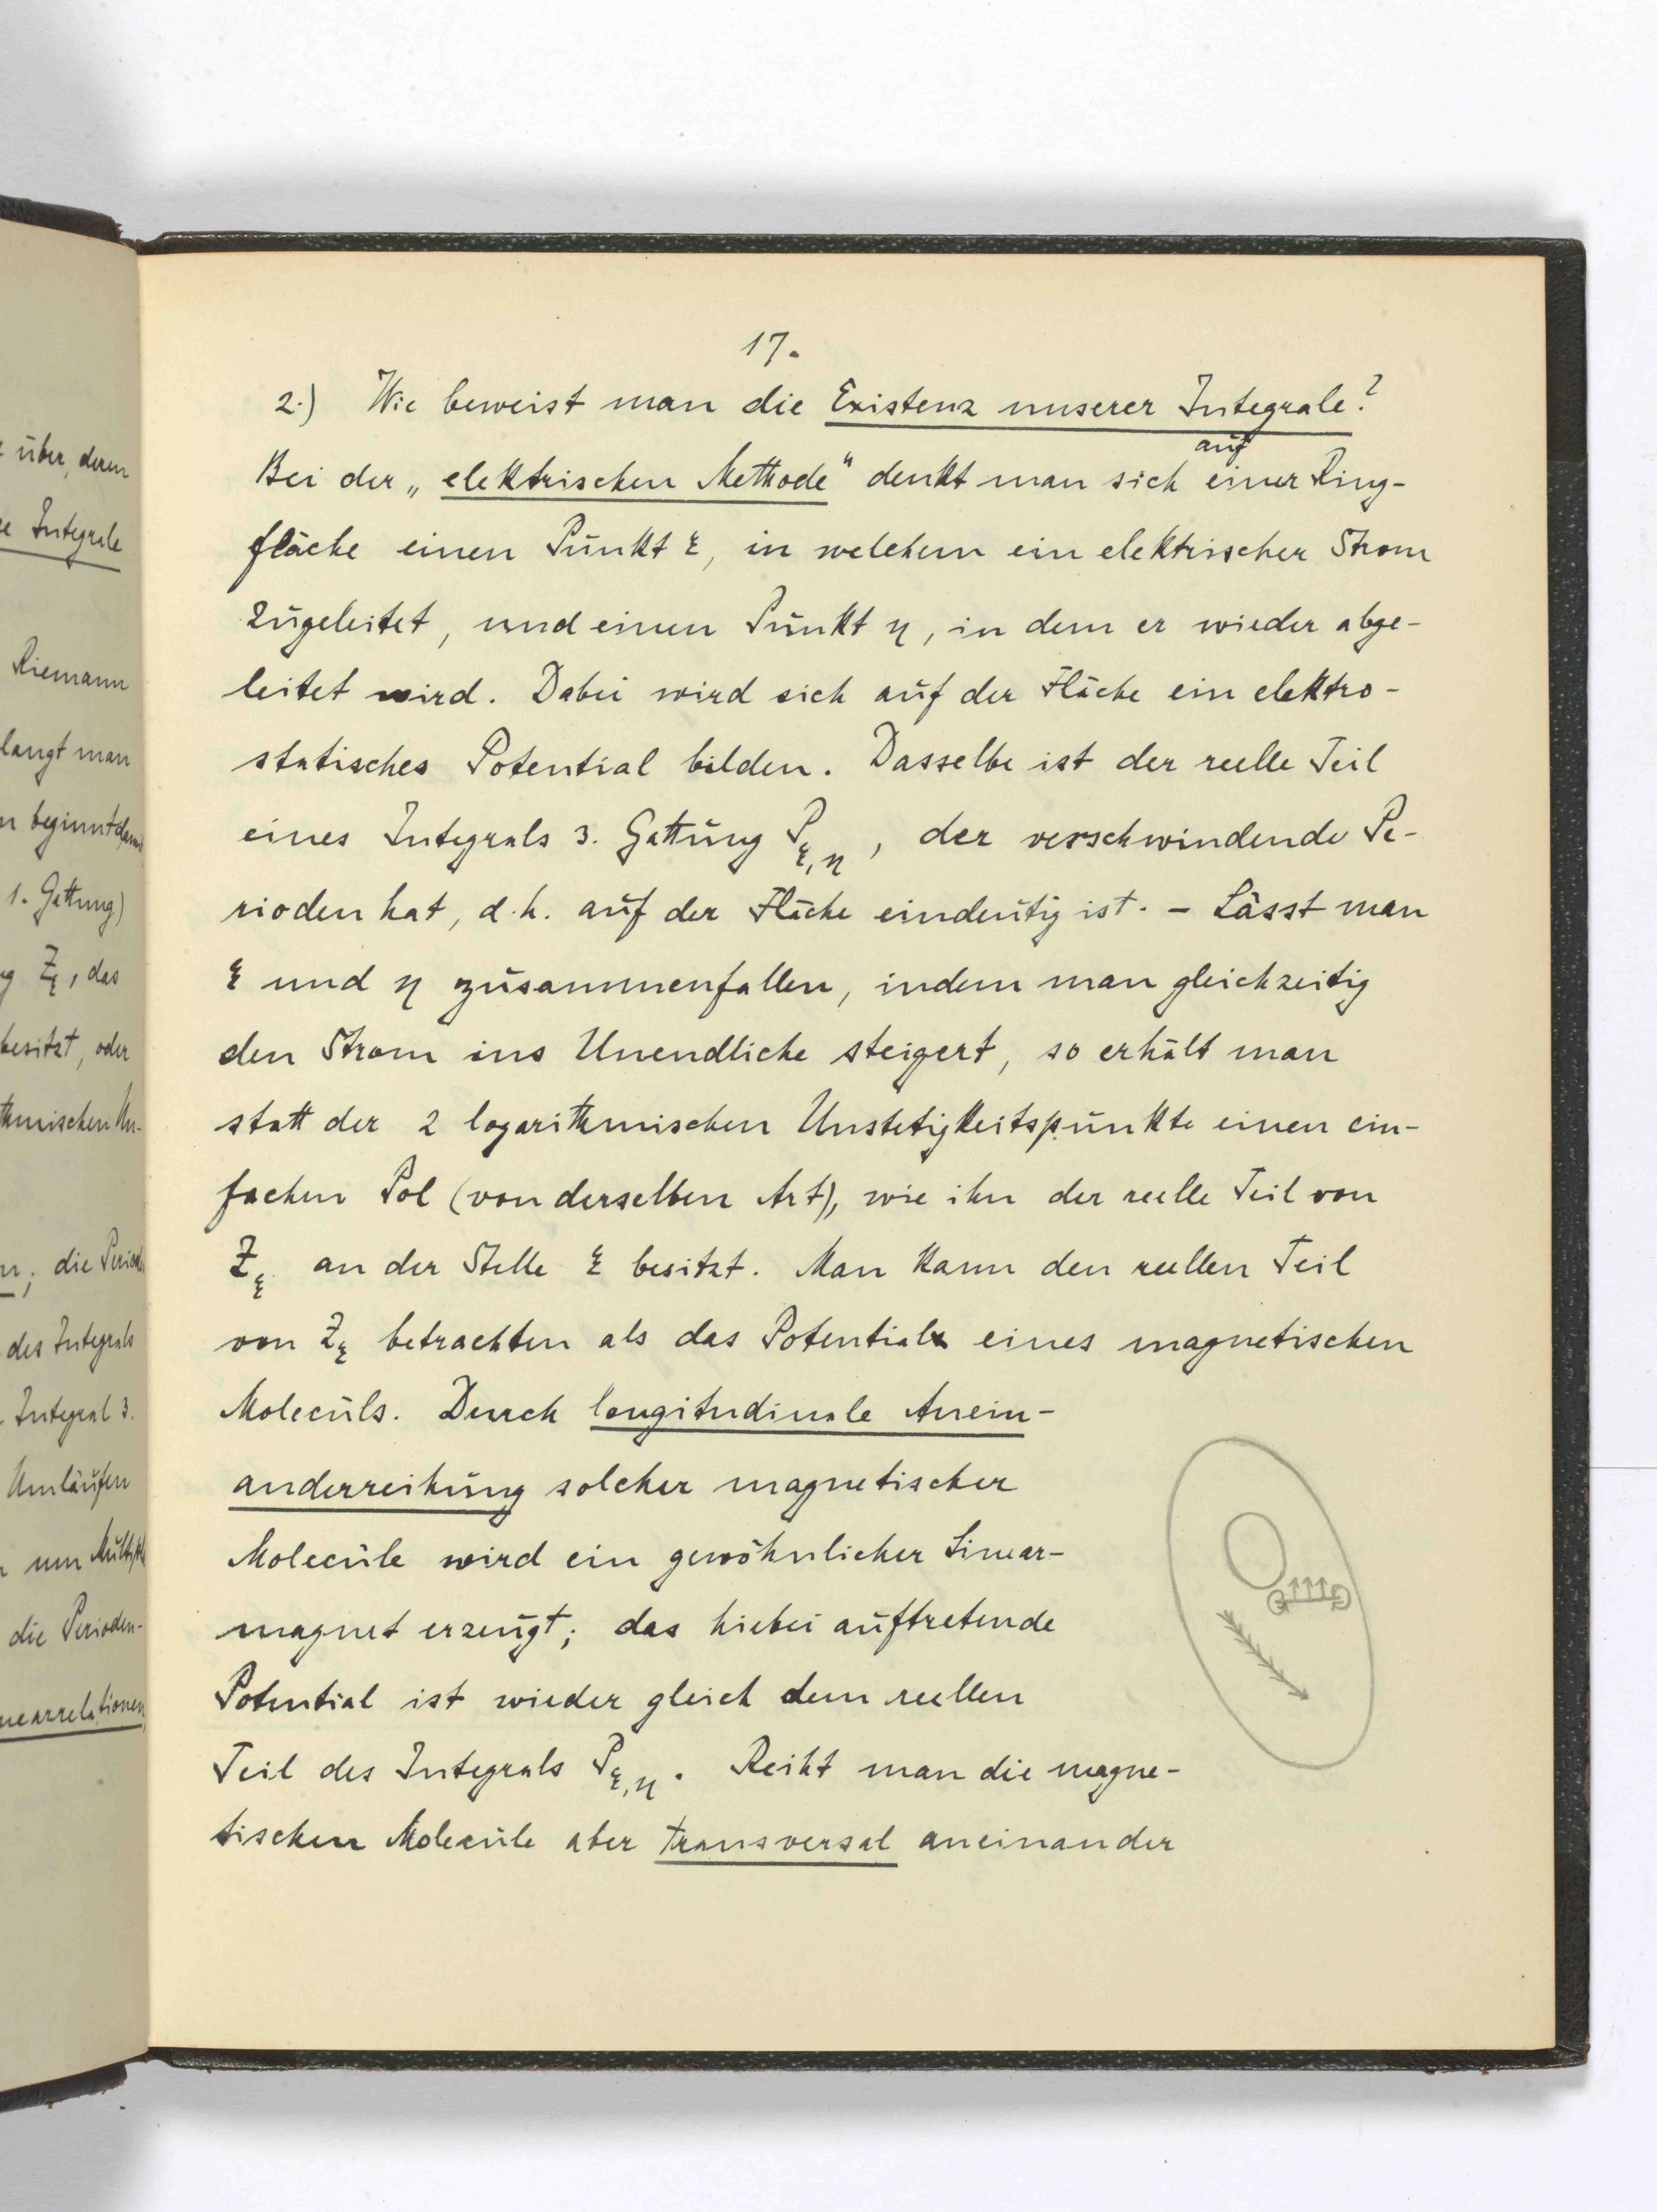 über, deren
Integrale
Riemann
langt man
beginnt
1. Gattung)
Z_ξ, das
besitzt, oder
thmischen Un-
die
des Integrals
Integral 3.
Umläufen
um
die Perioden-
nearrelationen,
17.
2.) Wie beweist man die Existenz unserer Integrale?
auf
Bei der „elektrischen Methode“ denkt man sich einer Ring-
fläche einen Punkt ξ, in welchem ein elektrischer Strom
zugeleitet, und einen Punkt η, in dem er wieder abge-
leitet wird. Dabei wird sich auf der Fläche ein elektro-
statisches Potential bilden. Dasselbe ist der reelle Teil
eines Integrals 3. Gattung P_ξ,η, der verschwindende Pe-
rioden hat, d.h. auf der Fläche eindeutig ist. – Lässt man
ξ und η zusammenfallen, indem man gleichzeitig
den Strom ins Unendliche steigert, so erhält man
statt der 2 logarithmischen Unstetigkeitspunkte einen ein-
fachen Pol (von derselben Art), wie ihn der reelle Teil von
Z_ξ an der Stelle ξ besitzt. Man kann den reellen Teil
von Z_ξ betrachten als das Potential eines magnetischen
Molecüls. Durch longitudinale Anein-
anderreihung solcher magnetischer
Molecüle wird ein gewöhnlicher Linear-
magnet erzeugt; das hiebei auftretende
Potential ist wieder gleich dem reellen
Teil des Integrals P_ξ,η. Reiht man die magne-
tischen Molecüle aber transversal aneinander